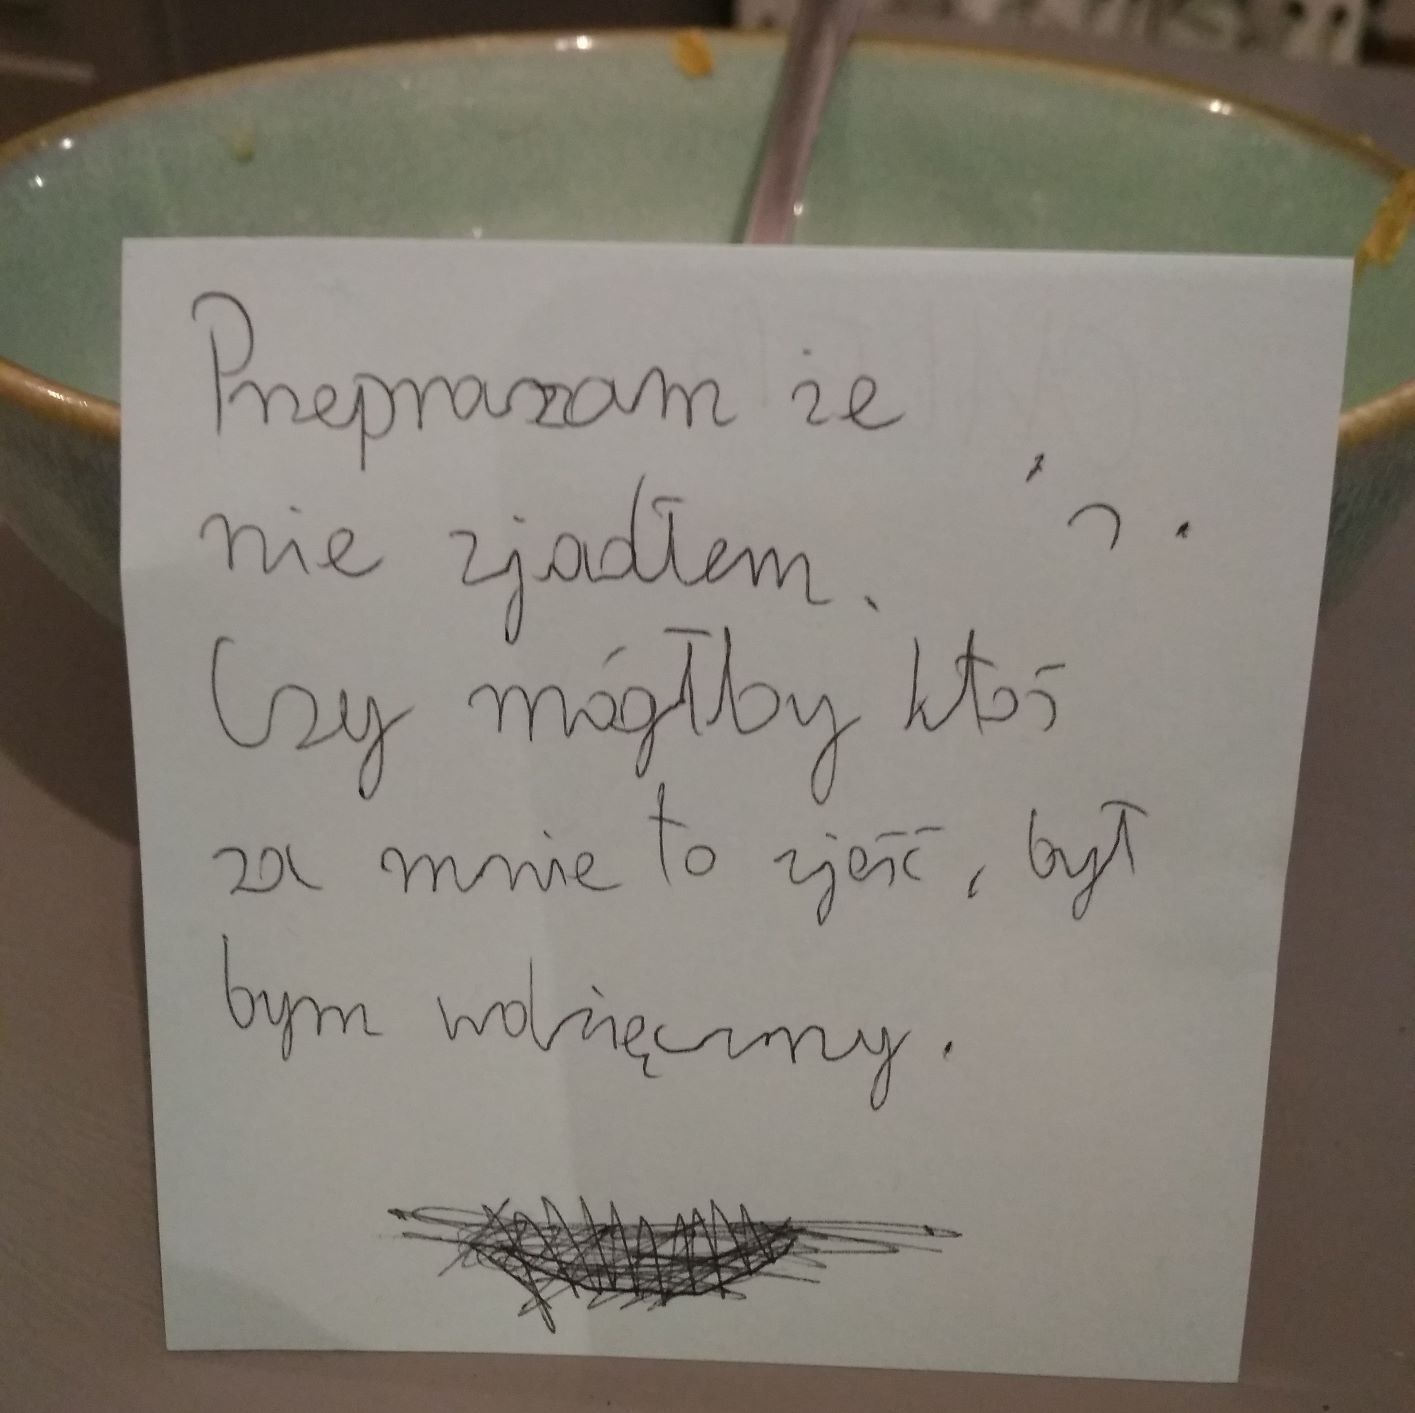 Przepraszam że
nie zjadłem.
Czy mógłby ktoś
za mnie to zjeść, był
bym wdzięczny.